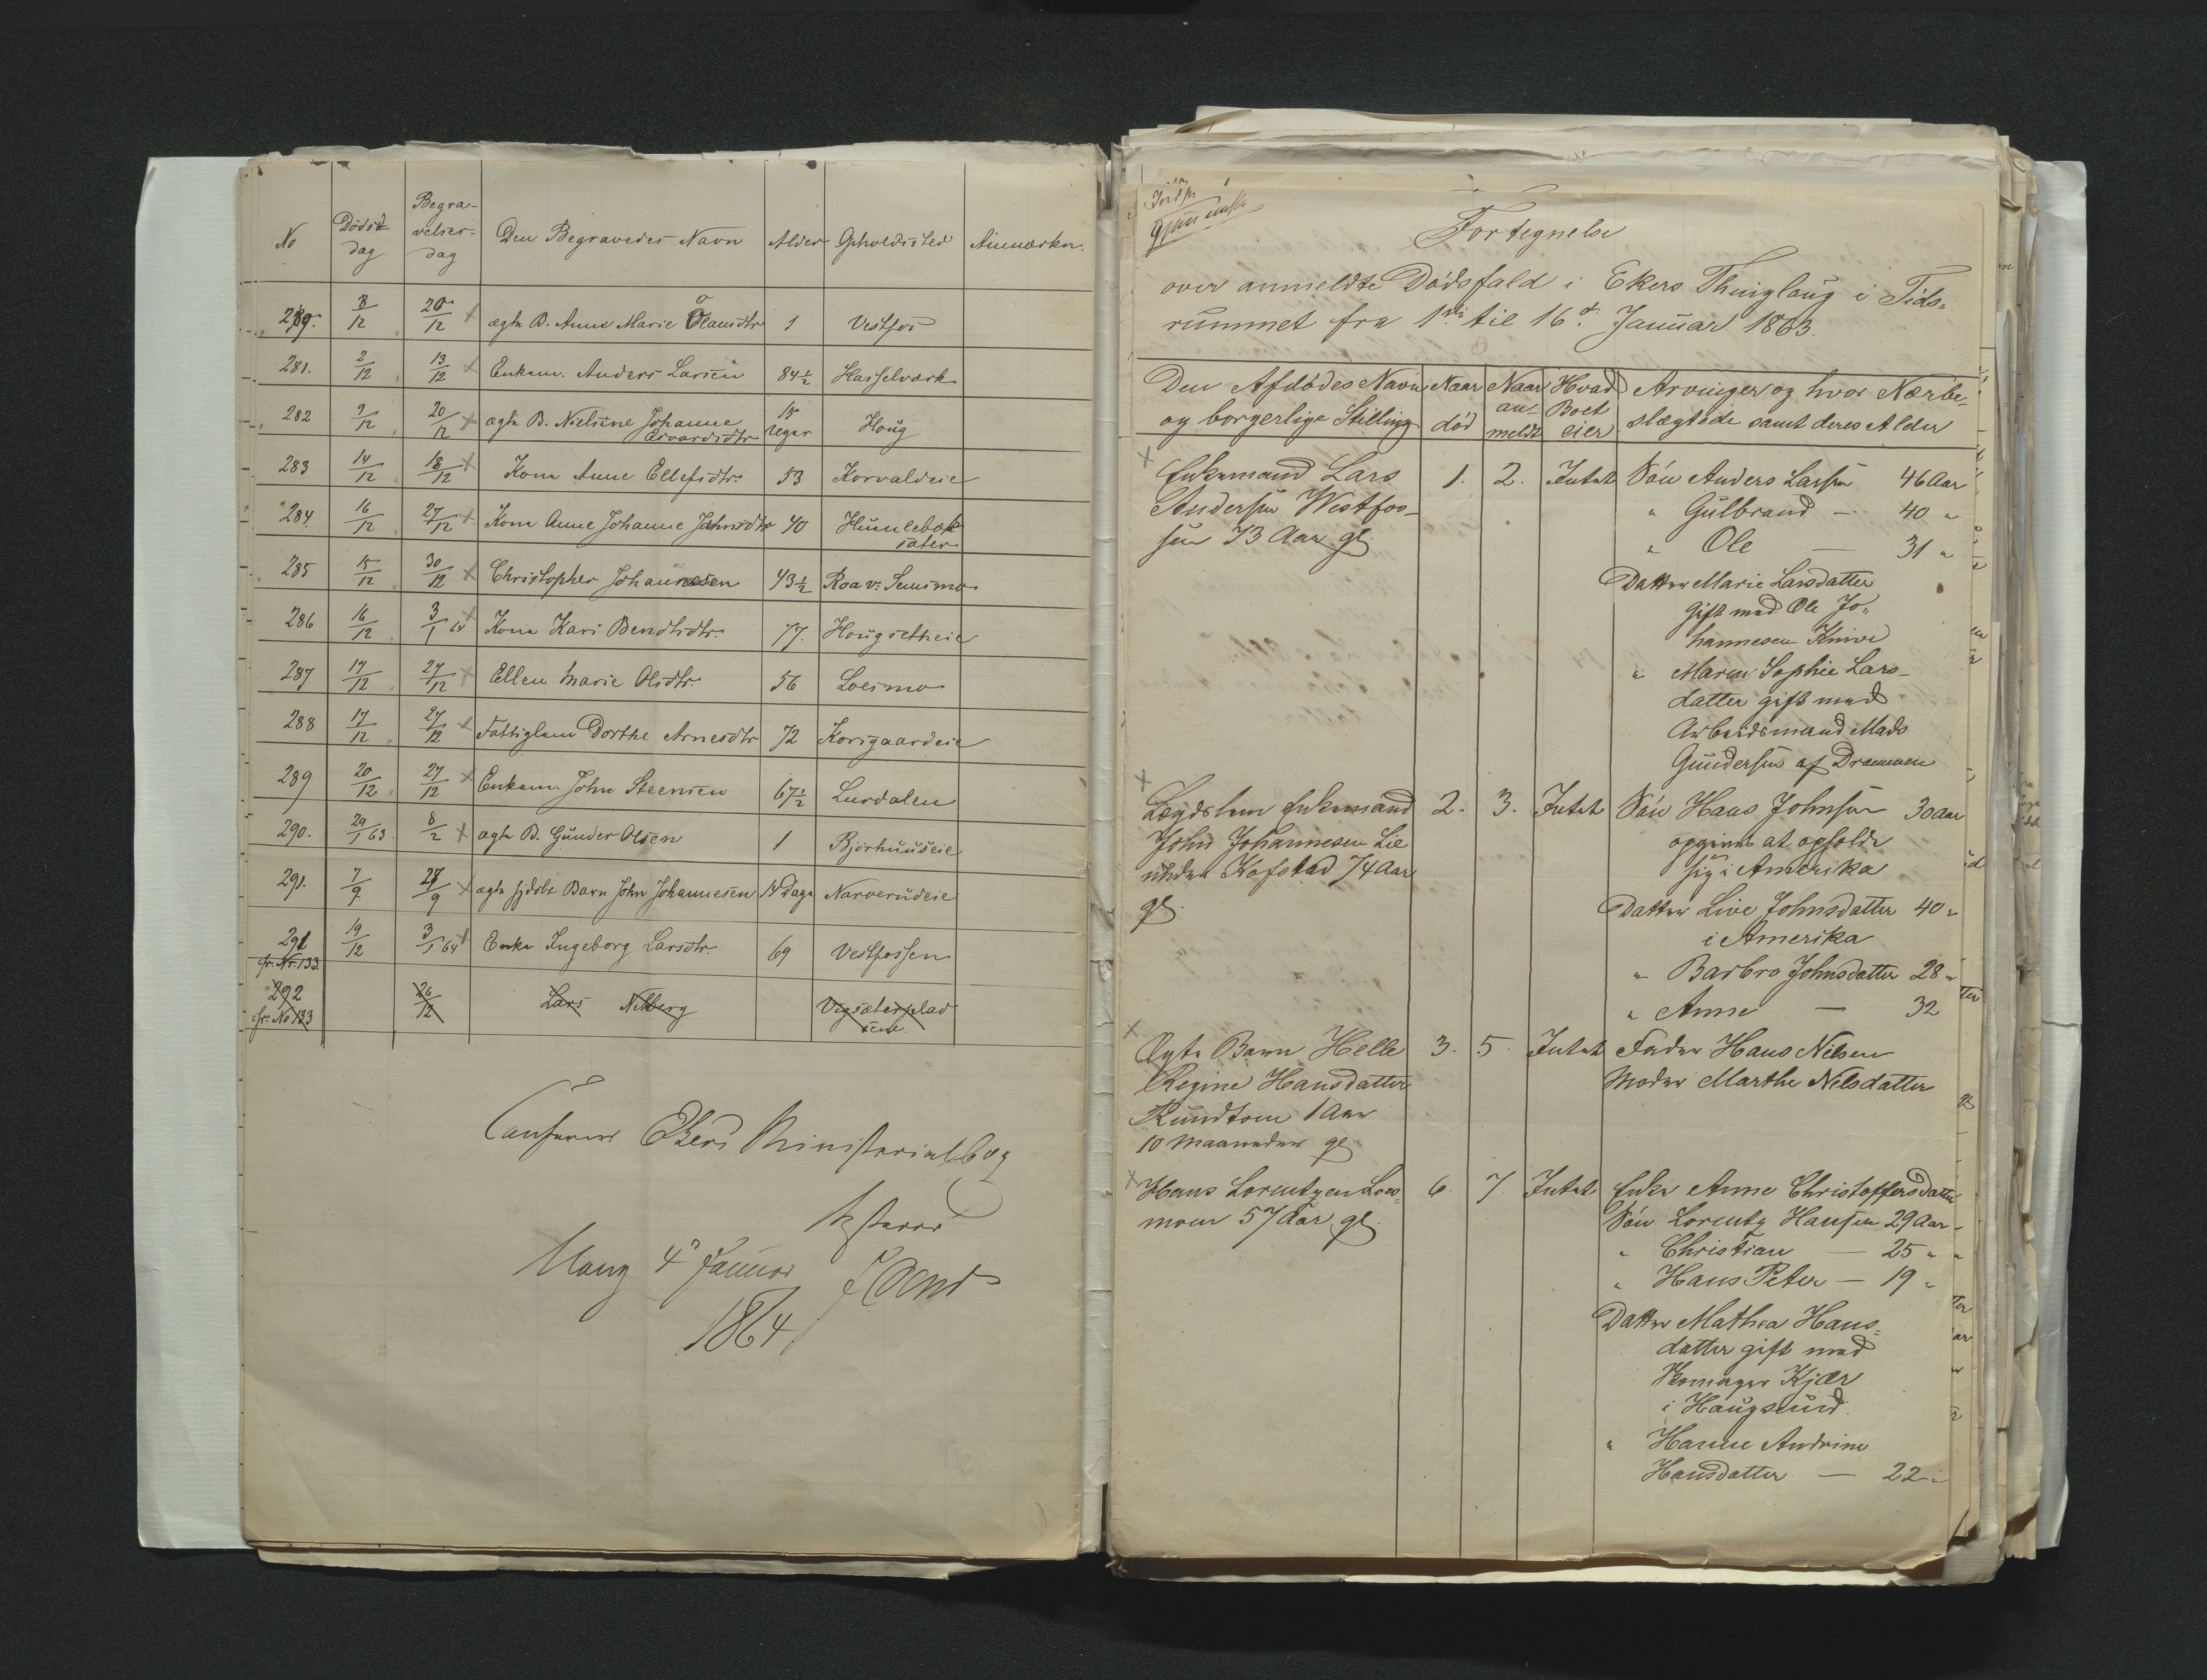 No Dödsdag Begravelses-dag Den Begravedes Navn Alder Opholdssted Anmærkn.
279. 8/12 20/12 ægte B. Anne Marie Olausdtr 1 Vestfos
281. 2/12 13/12 Enkem. Anders Larsen 84½ Hasselværk
282 9/12 20/12 ægte B. Nielsine Johanne Edvardsdtr 15 Uger Houg
283 14/12 18/12 Kone Anne Ellefsdtr. 53 Korvaldeie
284 16/12 27/12 Kone Anne Johanne Jahnsdtr 40 Humlebæk sæter
285 15/12 30/12 Christopher Johannesen 43½ Roa v. Semsmo
286 16/12 3/1 64 Kone Kari Bendtsdtr. 77. Hougsetheie
287 17/12 27/12 Ellen Marie Olsdtr. 56 Loesmo
288 17/12 27/12 Fattiglem Dorthe Arnesdtr 72 Korsgaardeie
289 20/12 27/12 Enkem. John Steensen 67½ Lurdalen
290. 29/1 63 8/2 ægte B. Gunder Olsen 1 Bjørhuuseie
291. 7/9 27/9 ægte hjdøbt Barn John Johannesen 14 Dage Narverudeie
291 19/12 3/1 64 Enke Ingeborg Larsdtr. 69 Vestfossen
fr. Nr. 133
292 26/12 Lars Nilberg Vegsæterplad
fr. No 133 sene
Conferert Ekers Ministerialbog
Haug 4d Januar
1864
Fortegnelse
over anmeldte Dødsfald i Ekers Thinglaug i Tids-
rummet fra 1ste til 16d. Januar 1863.
Den Afdødes Navn Naar Naar Hvad Arvinger og hvor Nærbe-
og borgerlige Stilling død an- Boet slægtede samt deres Alder
meldt eier
Enkemand Lars 1. 2. Intet Søn Anders Larsen 46 Aar
Andersen Westfos- " Gulbrand — 40 "
sen 73 Aar gl. " Ole — 31 "
Datter Marie Larsdatter
gift med Ole Jo-
hannesen Knive
" Maren Sophie Lars-
datter gift med
Arbeidsmand Mads
Gundersen af Drammen
Lægdslem Enkemand 2. 3. Intet Søn Hans Johnsen 30 Aar
John Johannesen Lie opgives at opholde
under Kofstad 74 Aar sig i Amerika
gl. Datter Live Johnsdatter 40 "
i Amerika
" Barbro Johnsdatter 28 "
" Anne — 32
Ægte Barn Helle 3. 5. Intet Fader Hans Nilsen
Regine Hansdatter Moder Marthe Nilsdatter
Rundtom 1 Aar
10 Maaneder gl.
Hans Lorentzen Loes- 6. 7. Intet Enke Anne Christoffersdatter
moen 57 Aar gl. Søn Lorentz Hansen 29 Aar
" Christian — 25 "
" Hans Peter — 19 "
Datter Mathea Hans-
datter gift med
Skomager Kjær
i Haugsund.
" Hanne Andrine
Hansdatter — 22 "